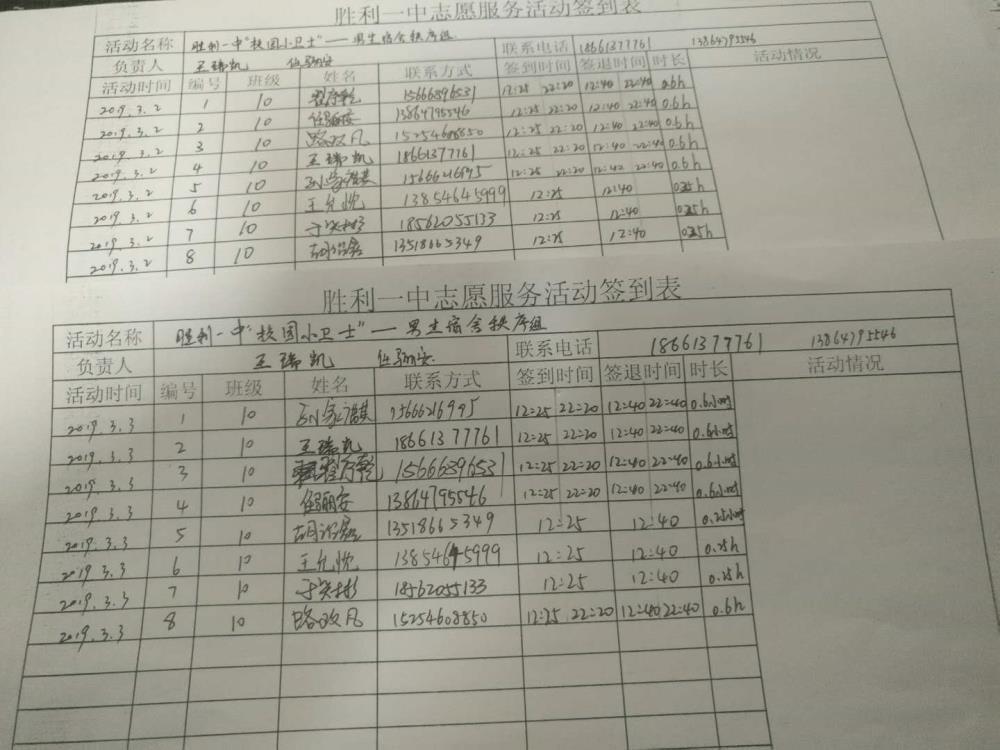 胜利一中志愿服务活动签到表
活动名称 胜利一中"校园小卫士"——男生宿舍秩序组 联系电话 18661377761 13864795546
负责人 王瑞凯 任骊安 签到时间 签退时间 时长 活动情况
活动时间 编号 班级 姓名 联系方式
2019.3.2 1 10 程序乾 15666896531 12:25 22:20 12:40 22:40 0.6h
2019.3.2 2 10 任骊安 13864795546 12:25 22:20 12:40 22:40 0.6h
2019.3.2 3 10 路改凡 15254608850 12:25 22:20 12:40 22:40 0.6h
2019.3.2 4 10 王瑞凯 18661377761 12:25 22:20 12:40 22:40 0.6h
2019.3.2 5 10 孙家祺 15666216995 12:25 22:20 12:40 22:40 0.6h
2019.3.2 6 10 王允忱 13854645999 12:25 12:40 0.25h
2019.3.2 7 10 18562055133 12:25 12:40 0.25h
2019.3.2 8 10 13518665349 12:25 12:40 0.25h
胜利一中志愿服务活动签到表
活动名称 胜利一中"校园小卫士"——男生宿舍秩序组
负责人 王瑞凯 任骊安 联系电话 18661377761 13864795546
活动时间 编号 班级 姓名 联系方式 签到时间 签退时间 时长 活动情况
2019.3.3 1 10 孙家祺 15666216995 12:25 22:20 12:40 22:40 0.6小时
2019.3.3 2 10 王瑞凯 18661377761 12:25 22:20 12:40 22:40 0.6小时
2019.3.3 3 10 程序乾 15666896531 12:25 22:20 12:40 22:40 0.6小时
2019.3.3 4 10 任骊安 13864795546 12:25 22:20 12:40 22:40 0.6小时
2019.3.3 5 10 13518665349 12:25 12:40 0.25小时
2019.3.3 6 10 王允忱 13854645999 12:25 12:40 0.25h
2019.3.3 7 10 18562055133 12:25 12:40 0.25h
2019.3.3 8 10 路改凡 15254608850 12:25 22:20 12:40 22:40 0.6h